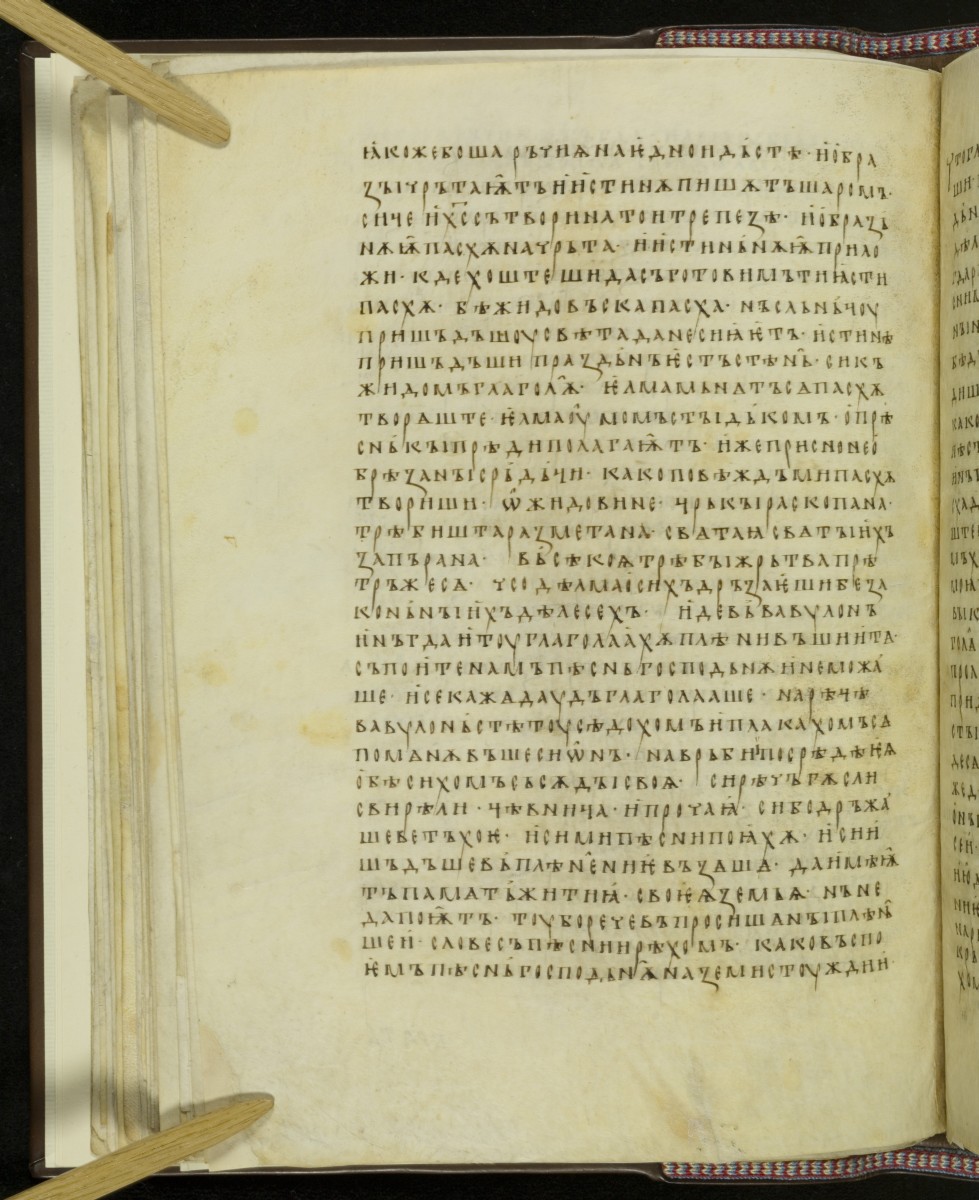 ꙗкоже бо шаръчниꙗ на ѥдинои дъстѣ · и обра
зы чрътаѭтъ и истинѫ пишѫтъ шаромъ ·
сиче и х҃с сътвори на тои трепезѣ · и образь
нѫѭ пасхѫ начръта · и истиньнѫѭ прило
жи · кде хоштеши да съготовимъ ти ꙗсти
пасхѫ · бѣ жидовъска пасха · нъ слъньчоу
пришъдъшоу свѣтада не сиꙗѥтъ · истинѣ
пришъдъши праздьнъ ѥстъ стѣнь · си къ
жидомъ глаголѭ · ѥлма мьнѧтъ сѧ пасхѫ
творѧште · ѥлма оумомъ стыдькомъ · опрѣ
снъкы прѣдиполагаѭтъ · иже присно нео
брѣзаны срьдьчи · како повѣждъ ми пасхѫ
твориши · ѡ жидовине · чрькы раскопана ·
трѣбишта разметана · свѧтаꙗ свѧтыихъ
запърана · вьсѣкоѩ трѣбы жрьтва прѣ
тръже сѧ · чсо дѣлма о сихъ дръзаѥши беза
коньныихъ дѣлесехъ · иде вь вавѵлонъ
инъгда и тоу глаголлаахѫ плѣнивъшии тѧ ·
съпоите намъ пѣснь господьнѫ и не можа
ше · и се кажѧ даѵдъ глаголлааше · на рѣчѣ
вавѵлоньстѣ тоу сѣдохомъ и плакахомъ сѧ
помѧнѫвъше сиѡнъ · на врьби посрѣдѣ ѥѩ
обѣсихомъ съсѫды своѩ · сирѣчъ гѫсли
свирѣли · чѣвнича · и прочаꙗ · си бо дръжа
ше ветъхоѥ · и сими пѣсни поꙗхѫ · и сии
шъдъше вь плѣнениѥ възѧшѧ · да имѣѭ
тъ памѧть житиꙗ · своѥѩ земьѩ · нъ не
да поѭтъ · тоу бо рече въпросишѧ ны плѣнь
шеи · словесъ пѣснии рѣхомъ · како въспо
ѥмъ пѣснь господьнѭ на земи стоуждии ·